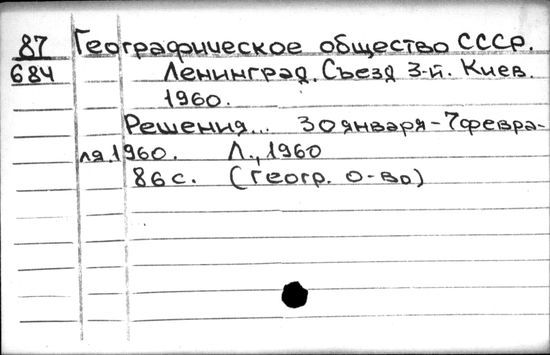 87 Географическое общество СССР.
684 Ленинград. Съезд 3-й. Киев.
1960.
Решения... 30 января-7 февра-
ля.1960. Л., 1960
86 с. (Геогр. о-во)